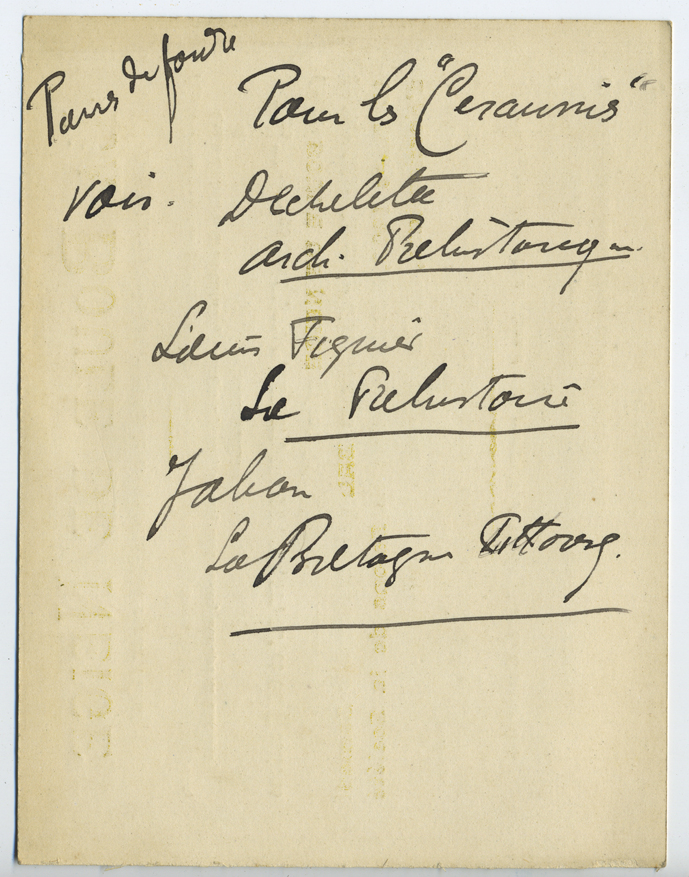 Pierres de foudre
Pour les "Ceraunies"
voir. Dechelette
Arch. Préhistorique
Louis Figuier
La Préhistoire
Jahan
La Bretagne